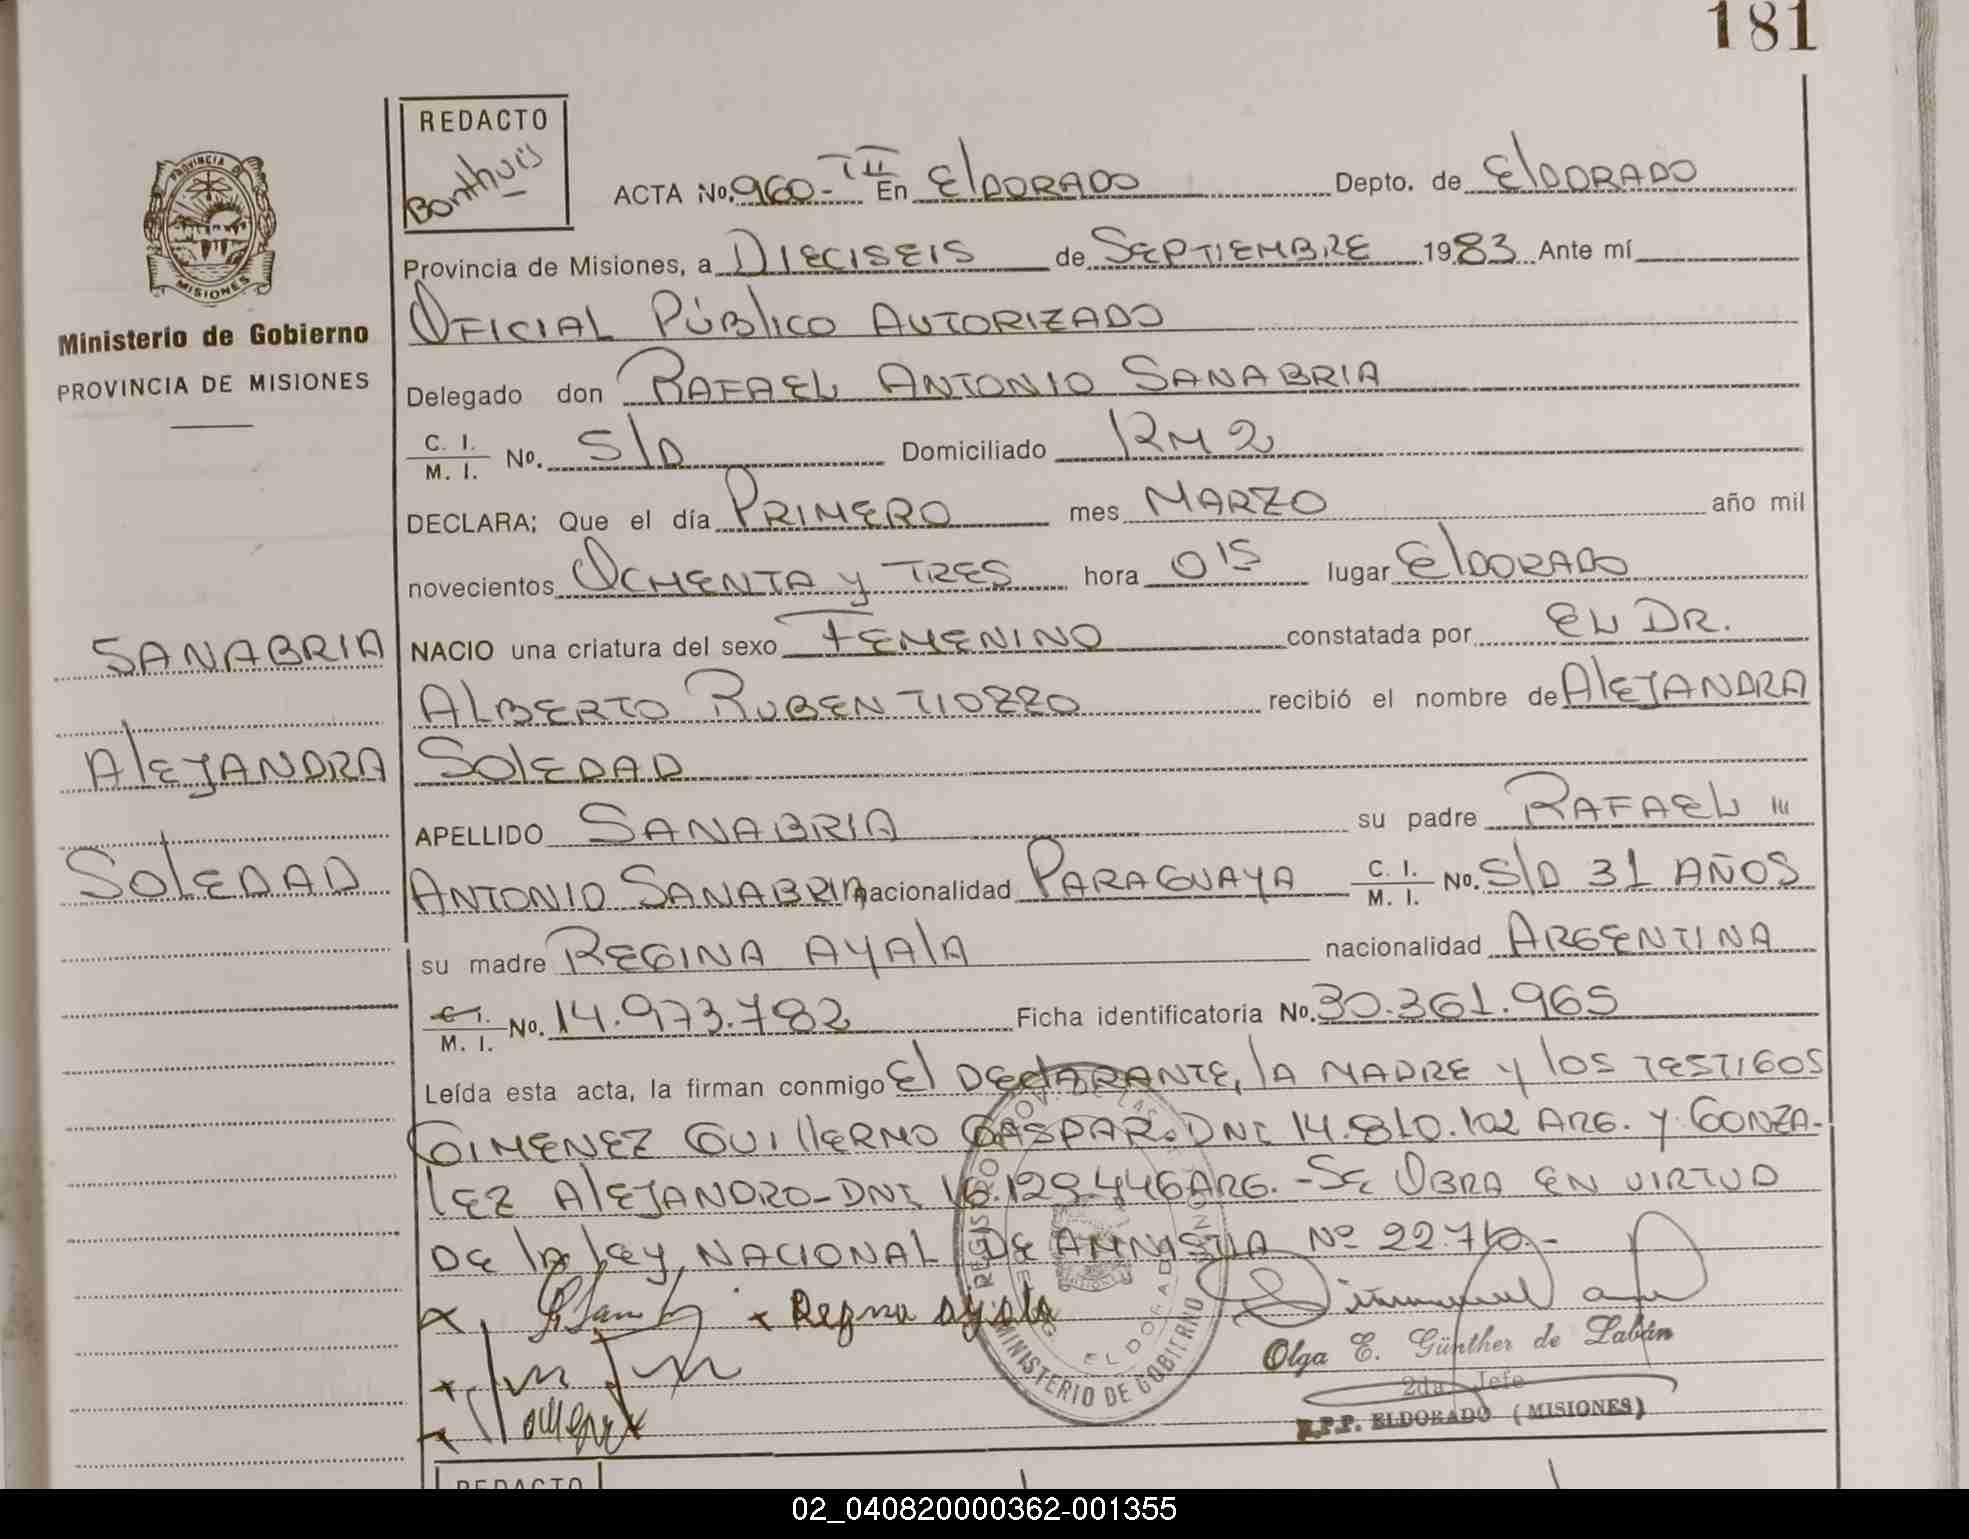 181
REDACTO
Bonthuis
PROVINCIA DE
MISIONES
Ministerio de Gobierno
PROVINCIA DE MISIONES
ACTA No. 960-III En ElDORADO Depto. de ElDORADO
Provincia de Misiones, a DIECISEIS de SEPTIEMBRE 1983 Ante mí
OFICIAL PÚBlICO AUTORIZADO
Delegado don RAFAEL ANTONIO SANABRIA
C. I. / M. I. No. S/D Domiciliado KM 2
DECLARA; Que el día PRIMERO mes MARZO año mil
novecientos OCHENTA y TRES hora 0 15 lugar ElDORADO
NACIO una criatura del sexo FEMENINO constatada por EL DR.
ALBERTO RUBEN TIOZZO recibió el nombre de AlEJANDRA
SOlEDAD
APELLIDO SANABRIA su padre RAFAEL
ANTONIO SANABRIA nacionalidad PARAGUAYA C. I. / M. I. No. S/D 31 AÑOS
su madre REGINA AYAlA nacionalidad ARGENTINA
C. I. / M. I. No. 14.973.782 Ficha identificatoria No. 30.361.965
Leída esta acta, la firman conmigo El DEClARANTE, lA MADRE y lOS TESTIGOS
GIMENEZ GUIllERMO GASPAR.DNI 14.810.102 ARG. Y GONZA-
lEZ AlEJANDRO-DNI 16.129.446 ARG. -SE OBRA EN VIRTUD
DE lA lEy NACIONAL DE AMNISTIA Nº
SANABRIA
AlEJANDRA
SOlEDAD
x x Regina ayala
Olga E. Günther de Labán
2da. Jefe
R.P.P. ELDORADO (MISIONES)
MINISTERIO DE GOBIERNO
ELDORADO
REDACTO
02_040820000362-001355